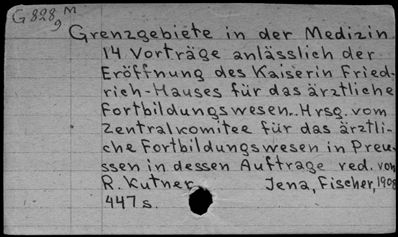 G 828 M
9
Grenzgebiete in der Medizin
14 Vorträge anlässlich der
Eröffnung des Kaiserin Fried-
rich-Hauses für das ärztliche
Fortbildungswesen. Hrsg. vom
Zentralkomitee für das ärztli-
che Fortbildungswesen in Preu-
ssen in dessen Auftrage red. von
R. Kutner. Jena, Fischer, 1908
447 s.